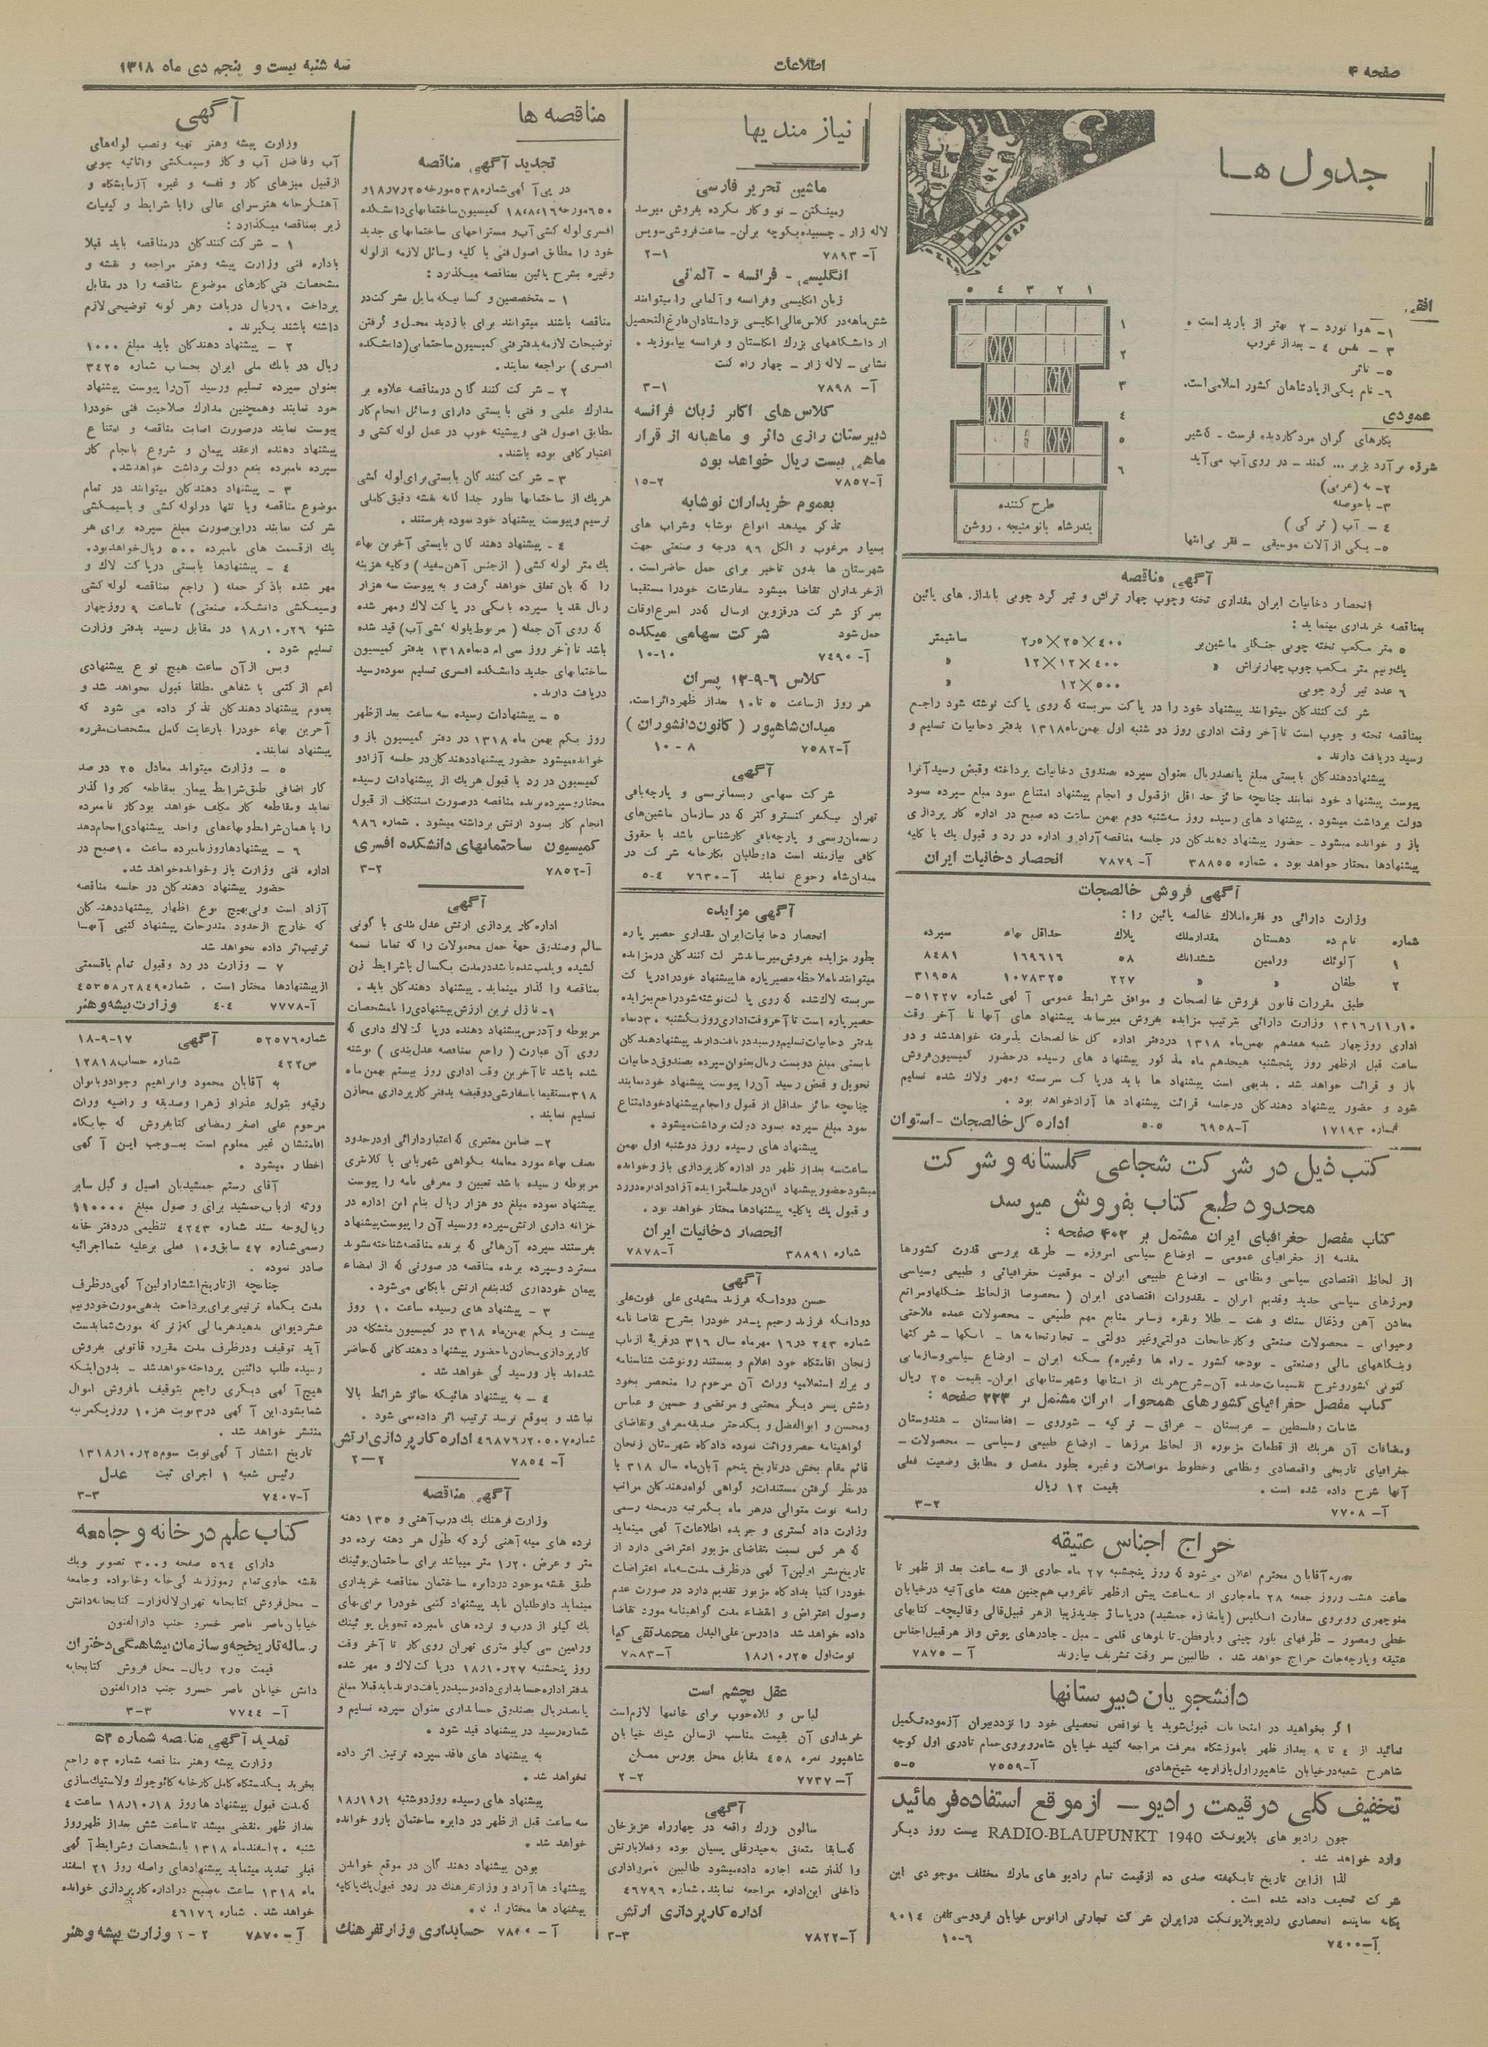 صفحه ۴
اطلاعات
سه شنبه بیست و پنجم دی ماه ۱۳۱۸
جدول ها
افقی
۱- هوا نورد - ۲ بهتر از باربد است .
۳ - نفس ۴- بعد از غروب
۵- تاتر
۶- نام یکی از پادشاهان کشور اسلامی است.
عمودی
بکارهای گران مرد کاردیده فرست - که شیر
شرزه بر آرد بزیر ... کمند - در روی آب می‌آید
۲- به (عربی)
۳- با حوصله
۴ - آب ( ترکی )
۵- یکی از آلات موسیقی - فقر بی‌انتها
۱ ۲ ۳ ۴ ۵
۱
۲
۳
۴
۵
۶
طرح کننده
بندرشاه بانو منیجه . روشن
آگهی مناقصه
انحصار دخانیات ایران مقداری تخته وچوب چهار تراش و تیر گرد چوبی باندازه های پائین
بمناقصه خریداری مینماید :
۵ متر مکعب تخته چوبی جنگلی ماشین بر ۴۰۰×۲۵×۲ر۵ سانتیمتر
یک ونیم متر مکعب چوب چهارتراش » ۴۰۰×۱۲×۱۲ »
۶ عدد تیر گرد چوبی ۵۰۰×۱۲ »
شرکت کنندگان میتوانند پیشنهاد خود را در پاکت سربسته که روی پاکت نوشته شود راجع
بمناقصه تخته و چوب است تا آخر وقت اداری روز دو شنبه اول بهمن‌ماه ۱۳۱۸ بدفتر دخانیات تسلیم و
رسید دریافت دارند .
پیشنهاددهندکان بایستی مبلغ پانصدریال بعنوان سپرده بصندوق دخانیات پرداخته وقبض رسید آنرا
پیوست پیشنهاد خود نمایند چنانچه حائز حد اقل از قبول و انجام پیشنهاد امتناع نمود مبلغ سپرده بسود
دولت برداشت میشود . پیشنهاد های رسیده روز سه‌شنبه دوم بهمن ساعت ده صبح در اداره کار پردازی
باز و خوانده میشود - حضور پیشنهاد دهندکان در جلسه مناقصه آزاد و اداره در رد و قبول یک یا کلیه
پیشنهادها مختار خواهد بود . شماره ۳۸۸۵۵ آ- ۷۸۷۹ انحصار دخانیات ایران
آگهی فروش خالصجات
وزارت دارائی دو فقره املاک خالصه پائین را :
شماره نام ده دهستان مقدار ملک پلاک حداقل بهاء سپرده
۱ آلوئک ورامین ششدانک ۵۸ ۱۶۹۶۱۶ ۸۴۸۱
۲ طغان » » ۲۲۷ ۱۰۷۸۳۲۵ ۳۱۹۵۸
طبق مقررات قانون فروش خالصجات و موافق شرایط عمومی آگهی شماره ۵۱۲۲۷-
۱۳۱۶ر۱۱ر۱۰ وزارت دارائی بترتیب مزایده بفروش میرساند پیشنهاد های آنها تا آخر وقت
اداری روز چهار شنبه هفدهم بهمن‌ماه ۱۳۱۸ دردفتر اداره کل خالصجات پذیرفته خواهدشد و دو
ساعت قبل ازظهر روز پنجشنبه هیجدهم ماه مذکور پیشنهاد های رسیده درحضور کمیسیون فروش
باز و قرائت خواهد شد . بدیهی است پیشنهاد ها باید درپاکت سربسته ومهر ولاک شده تسلیم
شود و حضور پیشنهاد دهندکان درجلسه قرائت پیشنهاد ها آزادخواهد بود .
شماره ۱۷۱۹۳ آ-۶۹۵۸ ۵-۵ اداره کل خالصجات - استوان
کتب ذیل در شرکت شجاعی گلستانه و شرکت
محدود طبع کتاب بفروش میرسد
کتاب مفصل جغرافیای ایران مشتمل بر ۴۰۳ صفحه :
مقدمه از جغرافیای عمومی - اوضاع سیاسی امروزه - طریقه بررسی قدرت کشورها
از لحاظ اقتصادی سیاسی ونظامی - اوضاع طبیعی ایران - موقعیت جغرافیائی و طبیعی وسیاسی
ومرزهای سیاسی جدید وقدیم ایران - مقدورات اقتصادی ایران ( مخصوصا ازلحاظ جنگلهاومراتع
معادن آهن وذغال سنک و نفت - طلا ونقره وسایر منابع مهم طبیعی - محصولات عمده فلاحتی
وحیوانی - محصولات صنعتی وکارخانجات دولتی وغیر دولتی - تجارتخانه ها - بانکها - شرکتها
وبنگاههای مالی وصنعتی - بودجه کشور - راه ها وغیره) سکنه ایران - اوضاع سیاسی وسازمانی
کنونی کشوروشرح تقسیمات جدیده آن-شرح هریک از استانها وشهرستانهای ایران- بقیمت ۲۵ ریال
کتاب مفصل جغرافیای کشورهای همجوار ایران مشتمل بر ۲۲۳ صفحه :
شامات وفلسطین - عربستان - عراق - ترکیه - شوروی - افغانستان - هندوستان
ومضافات آن هریک از قطعات مزبوره از لحاظ مرزها - اوضاع طبیعی وسیاسی - محصولات -
جغرافیای تاریخی واقتصادی ونظامی وخطوط مواصلات وغیره بطور مفصل و مطابق وضعیت فعلی
آنها شرح داده شده است . بقیمت ۱۲ ریال
آ- ۷۷۰۸ ۳-۲
حراج اجناس عتیقه
آقایان محترم اعلان می‌شود که روز پنجشنبه ۲۷ ماه جاری از سه ساعت بعد از ظهر تا
ساعت هشت وروز جمعه ۲۸ ماه جاری از سه ساعت پیش ازظهر تاغروب همچنین هفته های آتیه درخیابان
منوچهری روبروی سفارت انگلیس (پامغازه جمشید) درپاساژ جدیدزیبا ازهر قبیل قالی وقالیچه- کتابهای
خطی ومصور - ظرفهای بلور چینی وبارفطن-تابلوهای قلمی - مبل - چادرهای پوش و ازهر قبیل اجناس
عتیقه وپارچه‌جات حراج خواهد شد . طالبین سر وقت تشریف بیاورند آ - ۷۸۷۵
دانشجویان دبیرستانها
اگر بخواهید در امتحانات قبول شوید یا نواقص تحصیلی خود را نزد دبیران آزموده تکمیل
نمائید از ۴ تا ۹ بعد از ظهر بآموزشگاه معرفت مراجعه کنید خیابان شاه روبروی حمام نادری اول کوچه
شاهرخ شعبه درخیابان شاهپور اول بازارچه شیخ هادی آ-۷۵۵۹ ۵-۵
تخفیف کلی درقیمت رادیو - ازموقع استفاده فرمائید
چون رادیو های بلاپونکت RADIO-BLAUPUNKT 1940 بیست روز دیگر
وارد خواهد شد .
لذا ازاین تاریخ تایکهفته صدی ده ازقیمت تمام رادیو های مارک مختلف موجودی این
شرکت تخفیف داده شده است .
یکانه نماینده انحصاری رادیوبلاپونکت درایران شرکت تجارتی ارانوس خیابان فردوسی تلفن ۹۰۱۴
آ-۷۴۰۰ ۱۰-۶
نیازمندیها
ماشین تحریر فارسی
رمینکتن - نو و کار نکرده بفروش میرسد
لاله زار - چسبیده بکوچه برلن - ساعت فروشی-ویس
آ- ۷۸۹۳ ۲-۱
انگلیسی - فرانسه - آلمانی
زبان انگلیسی وفرانسه و آلمانی را میتوانند
شش‌ماهه در کلاس عالی انگلیسی نزد استادان فارغ التحصیل
از دانشگاههای بزرک انگلستان و فرانسه بیاموزید .
نشانی - لاله زار - چهار راه کنت
آ- ۷۸۹۸ ۳-۱
کلاس های اکابر زبان فرانسه
دبیرستان رازی دائر و ماهیانه از قرار
ماهی بیست ریال خواهد بود
آ-۷۸۵۷ ۱۵-۲
بعموم خریداران نوشابه
تذکر میدهد انواع نوشابه وشراب های
بسیار مرغوب و الکل ۹۶ درجه و صنعتی جهت
شهرستان ها بدون تاخیر برای حمل حاضر است .
ازخریداران تقاضا میشود سفارشات خودرا مستقیما
بمرکز شرکت درقزوین ارسال که در اسرع اوقات
حمل شود شرکت سهامی میکده
آ- ۷۴۹۰ ۱۰-۱۰
کلاس ۶-۹-۱۲ پسران
هر روز ازساعت ۵ تا ۱۰ بعد از ظهر دائر است.
میدان شاهپور ( کانون دانشوران )
آ-۷۵۸۲ ۸ - ۱۰
آگهی
شرکت سهامی ریسمانریسی و پارچه بافی
تهران بیکنفر کنترکتر که در سازمان ماشین‌های
ریسمان‌ریسی و پارچه بافی کارشناس باشد با حقوق
کافی نیازمند است داوطلبان بکارخانه شرکت در
میدان شاه رجوع نمایند آ-۷۶۳۰ ۵-۴
آگهی مزایده
انحصار دخانیات ایران مقداری حصیر پاره
بطور مزایده بفروش میرساند شرکت کنندکان درمزایده
میتوانند باملاحظه حصیر پاره ها پیشنهاد خودرا درپاکت
سربسته لاک شده که روی پاکت نوشته شود راجع بمزایده
حصیر پاره است تا آخر وقت اداری روز یکشنبه ۳۰ دیماه
بدفتر دخانیات تسلیم ورسید دریافت دارند پیشنهاد دهندکان
بایستی مبلغ دویست ریال بعنوان سپرده بصندوق دخانیات
تحویل و قبض رسید آن را پیوست پیشنهاد خود نمایند
چنانچه حائز حداقل از قبول و انجام پیشنهاد خود امتناع
نمود مبلغ سپرده بسود دولت برداشت میشود .
پیشنهاد های رسیده روز دوشنبه اول بهمن
ساعت سه بعد از ظهر در اداره کارپردازی باز و خوانده
میشود حضور پیشنهاد کنندگان در جلسه مزایده آزاد و اداره در رد
و قبول یک یا کلیه پیشنهادها مختار خواهد بود .
انحصار دخانیات ایران
شماره ۳۸۸۹۱ آ-۷۸۷۸
آگهی
حسن دودانگه فرزند مشهدی علی فوت علی
دودانگه فرزند رحیم پدر خودرا بشرح تقاضا نامه
شماره ۲۴۳ در ۱۶ مهرماه سال ۳۱۶ درقریه ازناب
زنجان اقامتگاه خود اعلام و بمستند رونوشت شناسنامه
و برک استعلامیه وراث آن مرحوم را منحصر بخود
وشش پسر دیگر مجتبی و مرتضی و حسین و عباس
ومحسن و ابوالفضل و یکدختر صدیقه معرفی و تقاضای
گواهینامه حصر وراثت نموده دادگاه شهرستان زنجان
قائم مقام بخش درتاریخ پنجم آبان‌ماه سال ۳۱۸ با
درنظر گرفتن مستندات و گواهی گواه دهندکان مراتب
راسه نوبت متوالی درهر ماه یکمرتبه درمجله رسمی
وزارت دادگستری و جریده اطلاعات آگهی مینماید
که هر کس نسبت بتقاضای مزبور اعتراضی دارد از
تاریخ نشر اولین آگهی در ظرف مدت سه‌ماه اعتراضات
خودرا کتبا بدادگاه مزبور تقدیم دارد در صورت عدم
وصول اعتراض و انقضاء مدت گواهینامه مورد تقاضا
داده خواهد شد دادرس علی البدل محمد تقی کیا
نوبت اول ۲۵ر۱۰ر۱۸ آ-۷۸۸۳
عقل بچشم است
لباس و کلاه خوب برای خانمها لازم است
خریداری آن بقیمت مناسب ازسالن شیک خیابان
شاهپور نمره ۴۵۸ مقابل محل بورس ممکن
آ- ۷۷۳۷ ۲-۲
آگهی
سالون بزرک واقعه در چهارراه عزیزخان
که سابقا متعلق به حیدرقلی پسیان بوده وفعلا بارتش
واگذار شده اجاره داده میشود طالبین بامور اداری
داخلی این اداره مراجعه نمایند. شماره ۴۶۷۹۶
اداره کارپردازی ارتش
آ-۷۸۲۲ ۳-۳
مناقصه ها
تجدید آگهی مناقصه
در پی آگهی شماره ۵۳۸ مورخه ۲۵ر۷ر۱۸ و
۶۵۰ مورخه ۱۶ر۸ر۱۸ کمیسیون ساختمانهای دانشکده
افسری لوله کشی آب و مستراحهای ساختمانهای جدید
خود را مطابق اصول فنی با کلیه وسائل لازمه ازلوله
وغیره بشرح پائین بمناقصه میگذارد :
۱ - متخصصین و کسانیکه مایل بشرکت در
مناقصه باشند میتوانند برای بازدید محل و گرفتن
توضیحات لازمه بدفتر فنی کمیسیون ساختمانی (دانشکده
افسری ) مراجعه نمایند .
۲ - شرکت کنندگان درمناقصه علاوه بر
مدارک علمی و فنی بایستی دارای وسائل انجام کار
مطابق اصول فنی و پیشینه خوب در عمل لوله کشی و
اعتبار کافی بوده باشند .
۳ - شرکت کنندگان بایستی برای لوله کشی
هریک از ساختمانها بطور جداگانه نقشه دقیق کاملی
ترسیم و پیوست پیشنهاد خود نموده بفرستند .
۴ - پیشنهاد دهندگان بایستی آخرین بهاء
یک متر لوله کشی ( ازجنس آهن سفید ) و کلیه هزینه
را که بآن تعلق خواهد گرفت و به پیوست سه هزار
ریال نقد یا سپرده بانکی در پاکت لاک و مهر شده
که روی آن جمله ( مربوط بلوله کشی آب ) قید شده
باشد تا آخر روز سی ام دیماه ۱۳۱۸ بدفتر کمیسیون
ساختمانهای جدید دانشکده افسری تسلیم نموده رسید
دریافت دارند .
۵ - پیشنهادات رسیده سه ساعت بعد ازظهر
روز یکم بهمن ماه ۱۳۱۸ در دفتر کمیسیون باز و
خوانده میشود حضور پیشنهاد دهندکان در جلسه آزاد و
کمیسیون در رد یا قبول هریک از پیشنهادات رسیده
مختار و سپرده برنده مناقصه درصورت استنکاف از قبول
انجام کار بسود ارتش برداشته میشود . شماره ۹۸۶
کمیسیون ساختمانهای دانشکده افسری
آ-۷۸۵۲ ۳-۲
آگهی
اداره کارپردازی ارتش عدل بندی با گونی
سالم وصندوق جهة حمل محمولات را که تماما تسمه
کشیده و پلمب شده باشد درمدت یکسال باشرایط زیر
بمناقصه واگذار مینماید . پیشنهاد دهندکان باید .
۱- نازل ترین ارزش پیشنهادی را بامشخصات
مربوطه و آدرس پیشنهاد دهنده در پاکت لاک داری که
روی آن عبارت ( راجع بمناقصه عدل بندی ) نوشته
شده باشد تا آخرین وقت اداری روز بیستم بهمن ماه
۳۱۸ مستقیما یا سفارشی دوقبضه بدفتر کارپردازی مخازن
تسلیم نمایند .
۲- ضامن معتبری که اعتبار دارائی او درحدود
نصف بهاء مورد معامله بگواهی شهربانی یا کلانتری
مربوطه رسیده باشد تعیین و معرفی نامه را پیوست
پیشنهاد نموده مبلغ دو هزار ریال بنام این اداره در
خزانه داری ارتش سپرده ورسید آن را پیوست پیشنهاد
بفرستند سپرده آن‌هائی که برنده مناقصه شناخته نشوند
مسترد و سپرده برنده مناقصه در صورتی که از امضاء
پیمان خودداری کند بنفع ارتش بایگانی می‌شود .
۳ - پیشنهاد های رسیده ساعت ۱۰ روز
بیست و یکم بهمن‌ماه ۳۱۸ در کمیسیون متشکله در
کارپردازی مخازن باحضور پیشنهاد دهندکانی که حاضر
شده‌اند باز ورسیدگی خواهد شد .
۴ - به پیشنهاد هائیکه حائز شرائط بالا
نباشد و بموقع نرسد ترتیب اثر داده نمی شود .
شماره ۲۰۵۰۷ر۴۶۸۷۶ اداره کارپردازی ارتش
آ- ۷۸۵۴ ۲-۲
آگهی مناقصه
وزارت فرهنگ یک درب آهنی و ۱۳۵ دهنه
نرده های میله آهنی گرد که طول هر دهنه نرده دو
متر و عرض ۱ر۲۰ متر میباشد برای ساختمان بوئینک
طبق نقشه موجود دردایره ساختمان بمناقصه خریداری
مینماید داوطلبان باید پیشنهاد کتبی خودرا برای بهای
یک کیلو از درب و نرده های نامبرده تحویل بوئینک
ورامین سی کیلو متری تهران روی کار تا آخر وقت
روز پنجشنبه ۲۷ر۱۰ر۱۸ درپاکت لاک و مهر شده
بدفتر اداره حسابداری داده رسید دریافت دارند باید قبلا مبلغ
پانصدریال بصندوق حسابداری بعنوان سپرده تسلیم و
شماره رسید در پیشنهاد قید شود .
به پیشنهاد های فاقد سپرده ترتیب اثر داده
نخواهد شد .
پیشنهاد های رسیده روز دوشنبه ۱ر۱۱ر۱۸
سه ساعت قبل از ظهر در دایره ساختمان باز و خوانده
خواهد شد .
بودن پیشنهاد دهندگان در موقع خواندن
پیشنهاد ها آزاد و وزارت فرهنک در رد و قبول یک یا کلیه
پیشنهاد ها مختار است .
حسابداری وزارت فرهنک
آگهی
وزارت پیشه وهنر تهیه ونصب لوله‌های
آب وفاضل آب و گاز وسیمکشی واثاثیه چوبی
ازقبیل میزهای کار و قفسه و غیره آزمایشگاه و
آهنگرخانه هنرسرای عالی رابا شرایط و کیفیات
زیر بمناقصه میگذارد :
۱ - شرکت کنندکان درمناقصه باید قبلا
باداره فنی وزارت پیشه وهنر مراجعه و نقشه و
مشخصات فنی کارهای موضوع مناقصه را در مقابل
پرداخت ۶۰ ریال دریافت وهر گونه توضیحی لازم
داشته باشند بگیرند .
۲ - پیشنهاد دهندکان باید مبلغ ۱۰۰۰
ریال در بانک ملی ایران بحساب شماره ۳۴۲۵
بعنوان سپرده تسلیم ورسید آن‌را پیوست پیشنهاد
خود نمایند وهمچنین مدارک صلاحیت فنی خودرا
پیوست نمایند درصورت اصابت مناقصه و امتناع
پیشنهاد دهنده ازعقد پیمان و شروع بانجام کار
سپرده نامبرده بنفع دولت برداشت خواهدشد .
۳ - پیشنهاد دهندکان میتوانند در تمام
موضوع مناقصه ویا تنها درلوله کشی و یاسیمکشی
شرکت نمایند دراین‌صورت مبلغ سپرده برای هر
یک ازقسمت های نامبرده ۵۰۰ ریال خواهدبود .
۴ - پیشنهادها بایستی درپاکت لاک و
مهر شده باذکر جمله ( راجع بمناقصه لوله کشی
وسیمکشی دانشکده صنعتی ) تاساعت ۹ روزچهار
شنبه ۲۶ر۱۰ر۱۸ در مقابل رسید بدفتر وزارت
تسلیم شود .
وپس ازآن ساعت هیچ نوع پیشنهادی
اعم از کتبی یا شفاهی مطلقا قبول نخواهد شد و
بعموم پیشنهاد دهندکان تذکر داده می شود که
آخرین بهاء خودرا بارعایت کامل مشخصات مقرره
پیشنهاد نمایند .
۵ - وزارت میتواند معادل ۲۵ در صد
کار اضافی طبق شرایط پیمان بمقاطعه کار واگذار
نماید ومقاطعه کار مکلف خواهد بود کار نامبرده
را باهمان شرایط وبهاءهای واحد پیشنهادی انجام دهد
۶ - پیشنهادها روز نامبرده ساعت ۱۰ صبح در
اداره فنی وزارت باز وخوانده خواهد شد .
حضور پیشنهاد دهندکان در جلسه مناقصه
آزاد است ولی بهیچ نوع اظهار پیشنهاددهندکان
که خارج ازحدود مندرجات پیشنهاد کتبی آنها
ترتیب اثر داده نخواهد شد
۷ - وزارت در رد وقبول تمام یاقسمتی
ازپیشنهادها مختار است . شماره ۲۸۴۹ر۴۵۳۵۸
آ-۷۷۷۸ ۴-۴ وزارت پیشه وهنر
شماره ۵۲۵۷۶ آگهی ۱۷-۹-۱۸
ص ۴۲۲ شماره حساب ۱۲۸۱۸
به آقایان محمود وابراهیم وجواد وبانوان
رقیه و بتول و عذرا و زهرا وصدیقه و راضیه وراث
مرحوم علی اصغر رمضانی کتابفروش که جایگاه
اقامتشان غیر معلوم است بموجب این آگهی
اخطار میشود .
آقای رستم جمشیدیان اصیل و کیل سایر
ورثه ارباب جمشید برای وصول مبلغ ۱۱۰۰۰۰
ریال وجه سند شماره ۴۲۴۳ تنظیمی دردفتر خانه
رسمی شماره ۴۷ سابق و ۱۰ فعلی برعلیه شما اجرائیه
صادر نموده .
چنانچه ازتاریخ انتشار اولین آگهی درظرف
مدت یکماه ترتیبی برای پرداخت بدهی مورث خود و نیم
عشر دیوانی ندهید هر مالی که از ترکه مورث شما بدست
آید توقیف ودرظرف مدت مقرره قانونی بفروش
رسیده طلب دائنین پرداخته خواهد شد - بدون اینکه
هیچ آگهی دیگری راجع بتوقیف یا فروش اموال
شما بشود. این آگهی در ۳ نوبت هر ۱۰ روز یکمرتبه
منتشر خواهد شد .
تاریخ انتشار آگهی نوبت سوم ۲۵ر۱۰ر۱۳۱۸
رئیس شعبه ۱ اجرای ثبت عدل
آ-۷۴۰۷ ۳-۳
کتاب علم در خانه و جامعه
دارای ۵۶۴ صفحه و ۳۰۰ تصویر و یک
نقشه حاوی تمام رموز زندگی خانه وخانواده وجامعه
- محل فروش کتابخانه تهران لاله‌زار - کتابخانه دانش
خیابان ناصر خسرو جنب دارالفنون
رساله تاریخچه و سازمان پیشاهنگی دختران
قیمت ۲ر۵ ریال - محل فروش کتابخانه
دانش خیابان ناصر خسرو جنب دارالفنون
آ- ۷۷۴۴ ۳-۳
تمدید آگهی مناقصه شماره ۵۳
وزارت پیشه وهنر مناقصه شماره ۵۳ راجع
بخرید یکدستگاه کامل کارخانه کائوچوک ولاستیک سازی
که مدت قبول پیشنهاد ها روز ۱۸ر۱۰ر۱۸ ساعت ۴
بعد از ظهر منقضی میشد تاساعت شش بعد از ظهر روز
شنبه ۲۰ اسفندماه ۱۳۱۸ بامشخصات وشرایط آگهی
قبلی تمدید مینماید پیشنهادهای واصله روز ۲۱ اسفند
ماه ۱۳۱۸ ساعت ده صبح دراداره کارپردازی خوانده
خواهد شد . شماره ۴۶۱۷۶
آ- ۷۸۷۰ ۲-۱ وزارت پیشه وهنر